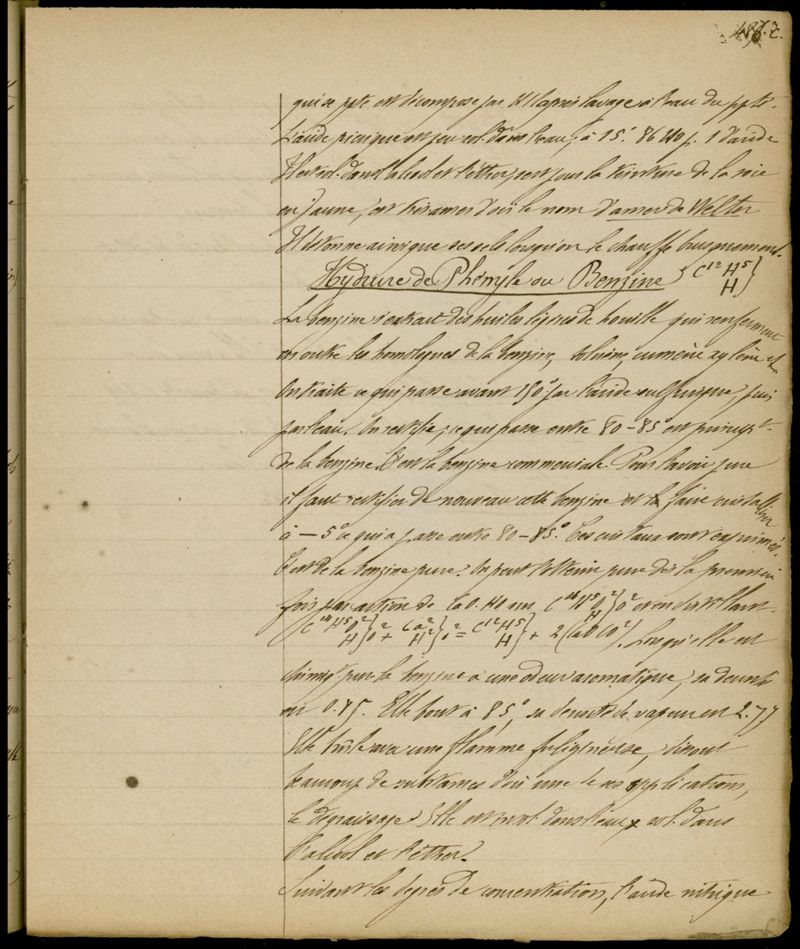 qui se ppte est décomposé par HCl après lavage à l'eau du ppté.
L'acide picrique est peu sol. dans l'eau, à 15° 86 HO p. 1 d'acide
Il est sol. dans l'alcool et l'éther, sert pour la teinture de la soie
en jaune, est très amer d'où le nom d'amer de Welter
Il détonne ainsi que ses sels lorsqu'on le chauffe brusquement.
Hydrure de Phényle ou Benzine { C¹² H⁵ }
H }
La benzine s'extrait des huiles légères de houille qui renferment
en outre les homologues de la benzine, toluène, cumène xylène et
On traite ce qui passe avant 150° par l'acide sulfurique, puis
par l'eau. On rectifie, ce qui passe entre 80 – 85° est princip.t
de la benzine. C'est la benzine commerciale. Pour l'avoir pure
il faut rectifier de nouveau cette benzine et la faire cristalliser
à – 5° ce qui a passé entre 80 – 85°. Ces cristaux sont exprimés.
C'est de la benzine pure. On peut l'obtenir pure dès la première
fois par action de CaO. HO sur C¹⁴ H⁵ O² } O² en
H
C¹⁴ H⁵ O² } O² + Ca² } O² = C¹² H⁵ } + 2 (CaO CO²). Lorsqu'elle est
H } H² } H }
chimiq. pure la benzine a une odeur aromatique, sa densité
est 0.85. Elle bout à 85°, sa densité de vapeur est 2.77
Elle brûle avec une flamme fuligineuse, dissout
beaucoup de substances d'où une de ses applications,
le dégraissage. Elle est insol. dans l'eau, sol. dans
l'alcool et l'éther.
Suivant les degrés de concentration, l'acide nitrique